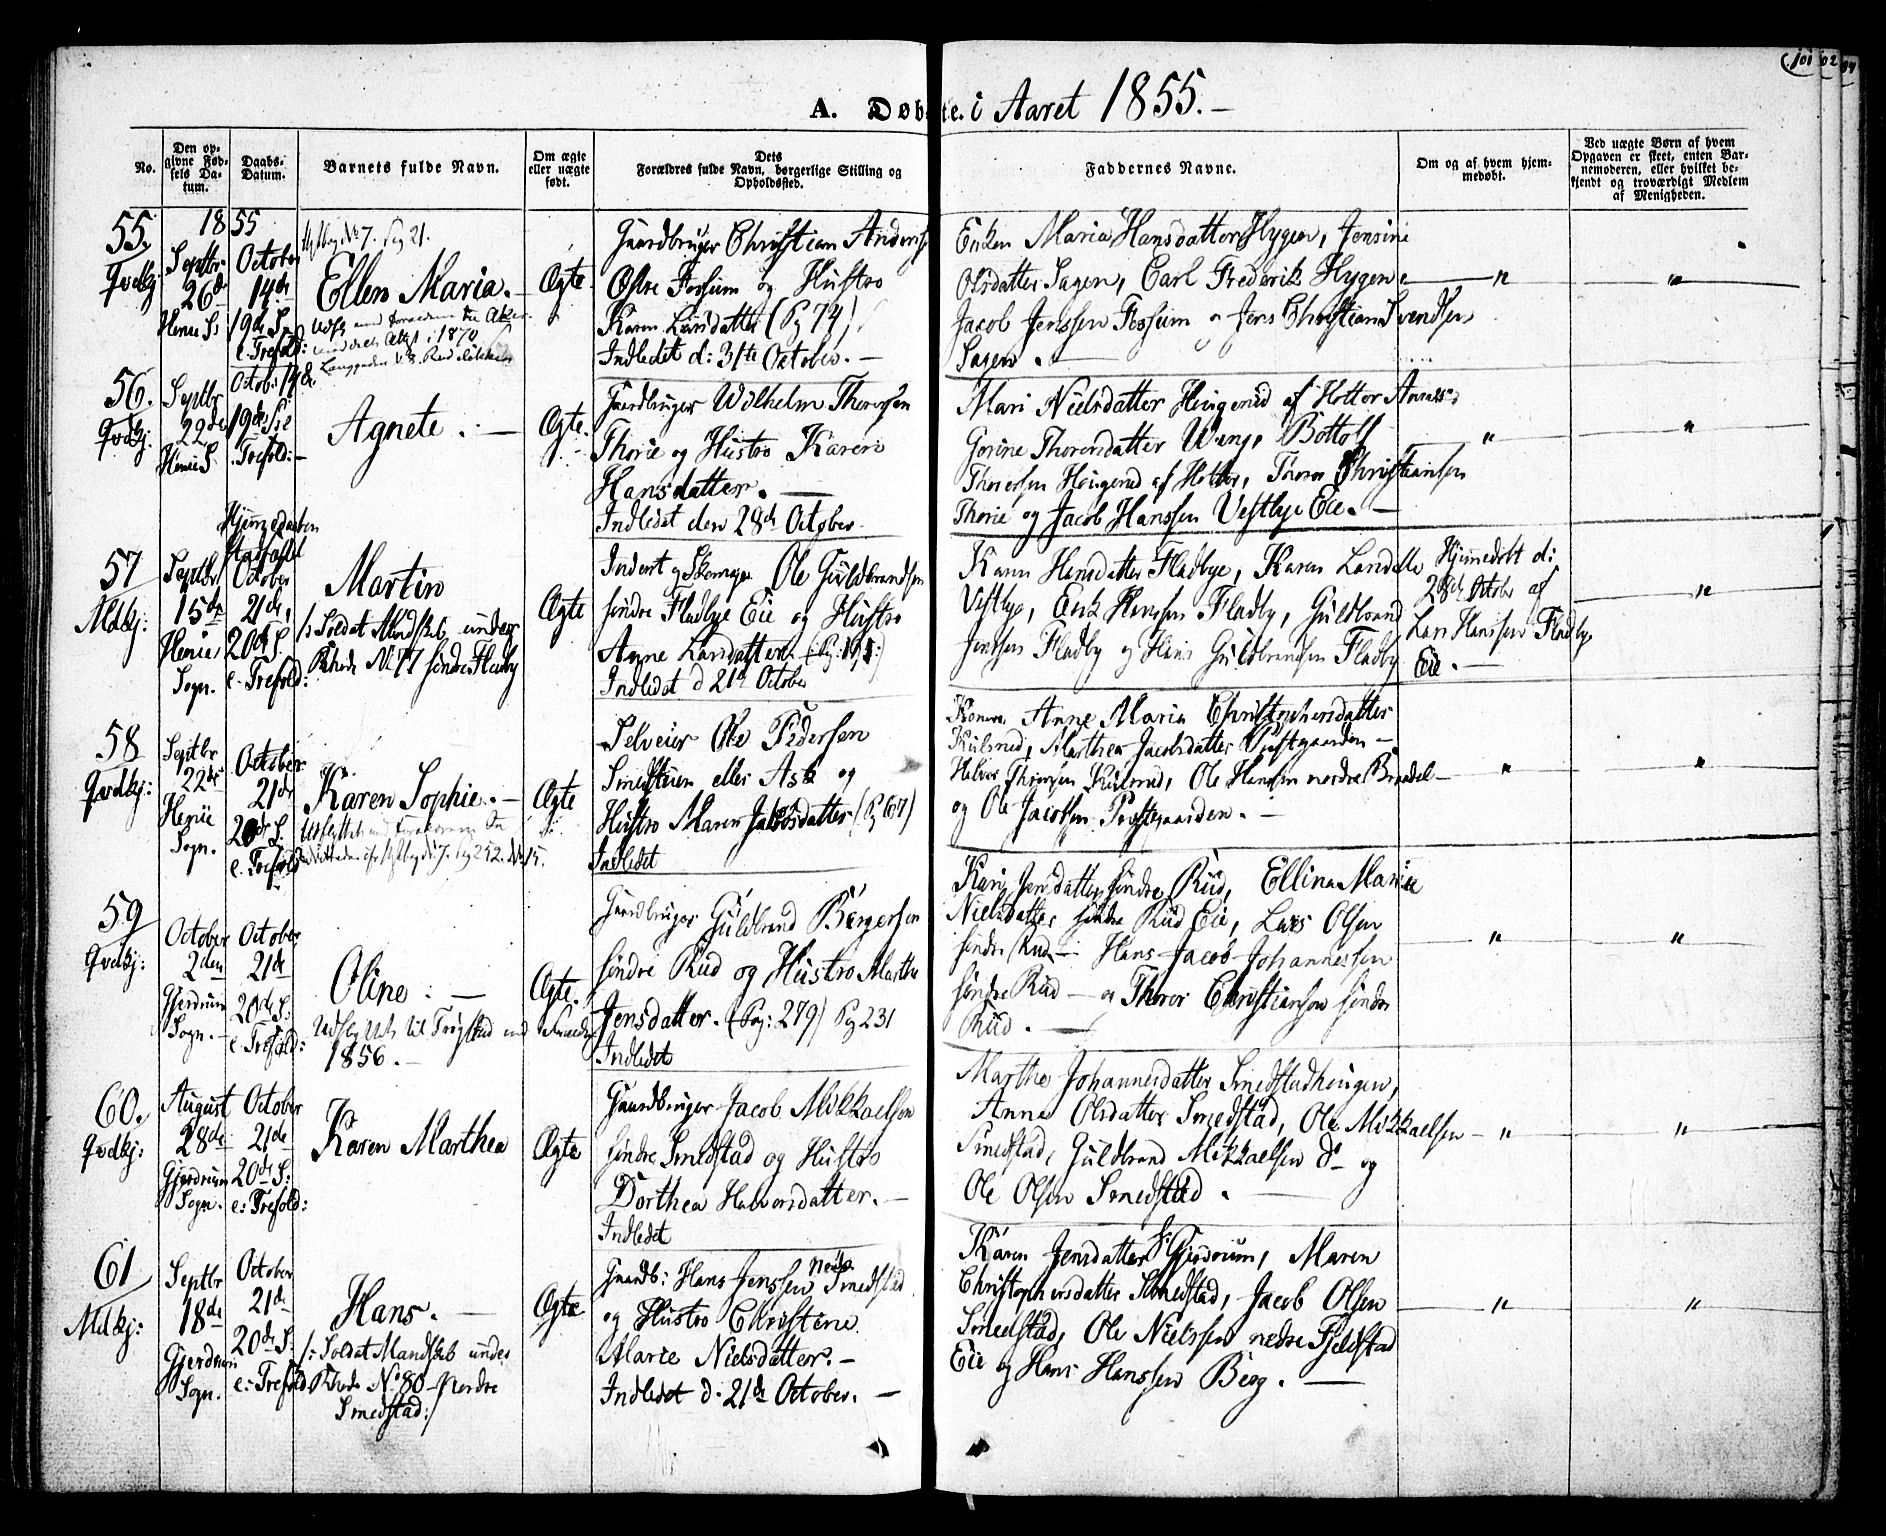 101
A. Døbte. i Aaret 1855.-
No.
Den opgivne Fødsels Datum.
Daabs-Datum.
Barnets fulde Navn.
Om ægte eller uægte født.
Dets Forældres fulde Navn, borgerlige Stilling og Opholdssted.
Faddernes Navne.
Om og af hvem hjemmedøbt.
Ved uægte Børn af hvem Opgaven er skeet, enten Barnemoderen, eller hvilket bekjendt og troværdigt Medlem af Menigheden.
55.
Qvdkj:
1855
Septbr
26de
October
14de
19de S.
e. Trefold:
Ellen Maria.-
Ægte.
Gaardbruger Christian Anders
Østre Fossum og Hustro
Karen Larsdatter (Pg 74)
Indledet d: 31te October.-
Enken Maria Hansdatter Hygen, Jensine
Olsdatter Sagen, Carl Frederik Hygen
Jacob Jenssen Fossum og Jens Christian Svendsen
Sagen.-
56.
Qvdkj.
Septbr
22de
Octob: 14de
19de S e
Trefold:-
Agnete.-
Ægte.
Gaardbruger Wilhelm Thoresen
Thorie og Hustro Karen
Hansdatter.-
Indledet den 28de October.
Mari Nielsdatter Heigerud af Hotter
Gorine Thoresdatter Bottolf
Thoresen Heigerud af Hotter, Thorer Christiansen
Thorie og Jacob Hanssen Vestbye Eie.-
57
Mdkj:
Septbr
15de
October
21de,
20de S.
e. Trefold:
Sogn.
Martin
/: Soldat Mandskab under
Rhode No 77 søndre Fladby
Ægte
Inderst og Skomager Ole Guldbrandsen
søndre Fladbye Eie og Hustro
Anne Larsdatter.
Indledet d 21de October
Karen Hansdatter Fladbye, Karen Larsd
Vestbye, Erik Hanssen Fladby, Guldbrand
Jenssen Fladby og Hans Guldbrandsen Fladby
Hjemmedøbt d:
28de Octobr af
Lars Hanssen Fladby
Eie.-
58
Qvdkj:
Septbr
22de
Sogn.
October
21de
20de S.
e. Trefold
Karen Sophie.-
Ægte
Selveier Ole Pedersen
Smedstuen eller Ask og
Hustro Maren Jacobsdatter (Pg 67)
Indledet
Konen Anne Maria Christophersdatter
Kulsrud, Marthea Jacobsdatter Præstgaarden-
Halvor Thoresen Kulsrud, Ole Hanssen nordre Brædel-
og Ole Jacobsen Præstegaarden.-
59
Qvdkj:
October
2den
Gjerdrum
Sogn.-
October
21de
20de S:
e. Trefold:
Oline.-
1856.-
Ægte.
Gaardbruger Guldbrand Børgersen
søndre Rud og Hustro Marthe
Jensdatter. (Pag: 279) Pg 231
Indledet
Kari Jensdatter søndre Rud, Ellina Marie
Nielsdatter søndre Rud Eie, Lars Olsen
søndre Rud.- Hans Jacob Johannessen
søndre Rud - og Thorer Christiansen søndre
Rud.-
60.
Qvdkj:
August
28de
Gjerdrum
Sogn.
October
21de
20de S:
e: Trefold:
Karen Marthea
Ægte
Gaardbruger Jacob Mikkaelsen
søndre Smedstad og Hustro
Dorthea Halvorsdatter.-
Indledet
Marthe Johannesdatter Smedstadhougen,
Anne Olsdatter Smedstad, Ole Mikkaelsen
Smedstad, Guldbrand Mikkaelsen do og
Ole Olsen Smedstad.-
61
Mdkj:
Septbr
18de
Gjerdrum
Sogn.
October
21de
20de S:
e: Trefold
Hans.-
/: Soldat Mandskab under
Rhode No 80 Nordre
Smedstad:/
Ægte
Gaardb: Hans Jenssen Nordre Smedstad
og Hustro Christine
Marie Nielsdatter.-
Indledet d. 21de October.-
Karen Jensdatter Gjerdrum, Maren
Christophersdatter Smedstad, Jacob Olsen
Smedstad, Ole Nielssen nedre Fjeldstad
Eie og Hans Hanssen Berg.-